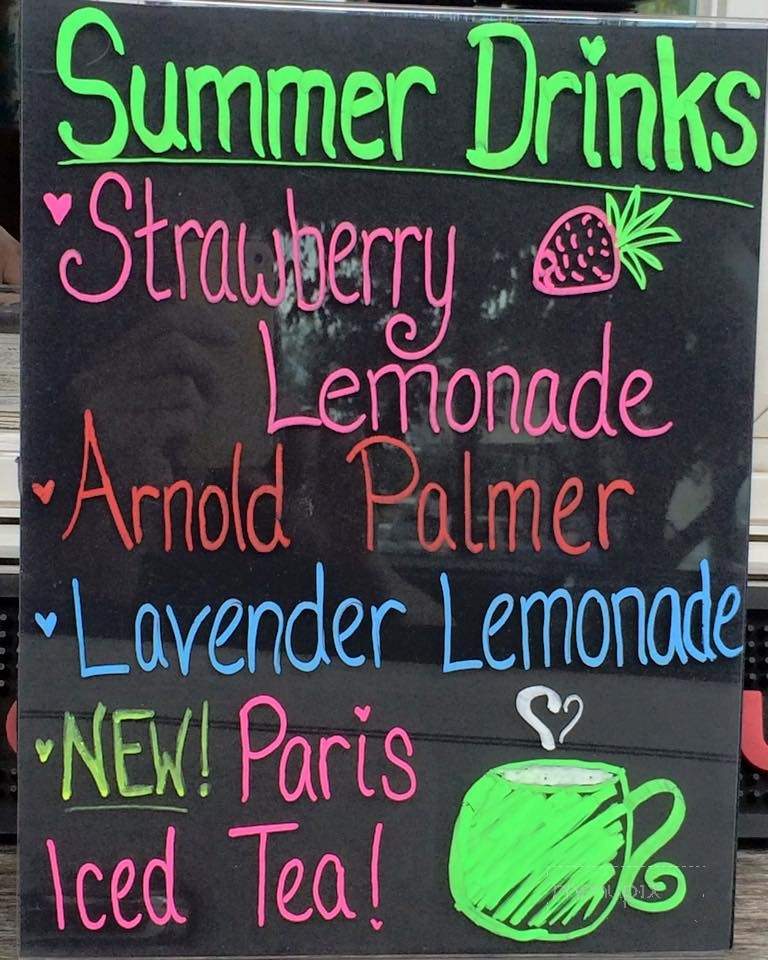 Summer Drinks
Strawberry
Lemonade
Arnold Palmer
Lavender Lemonade
NEW! Paris
Iced Tea!